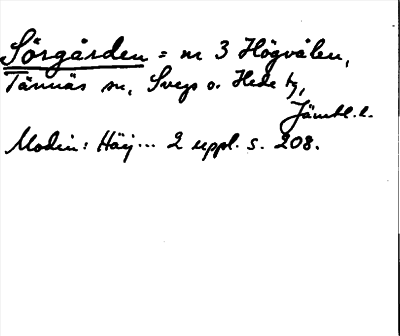 Sörgården = nr 3 Högvålen,
Tännäs sn, Svegs o. Hede tg,
Jämtl. l.
Modin: Härj... 2 uppl. s. 208.